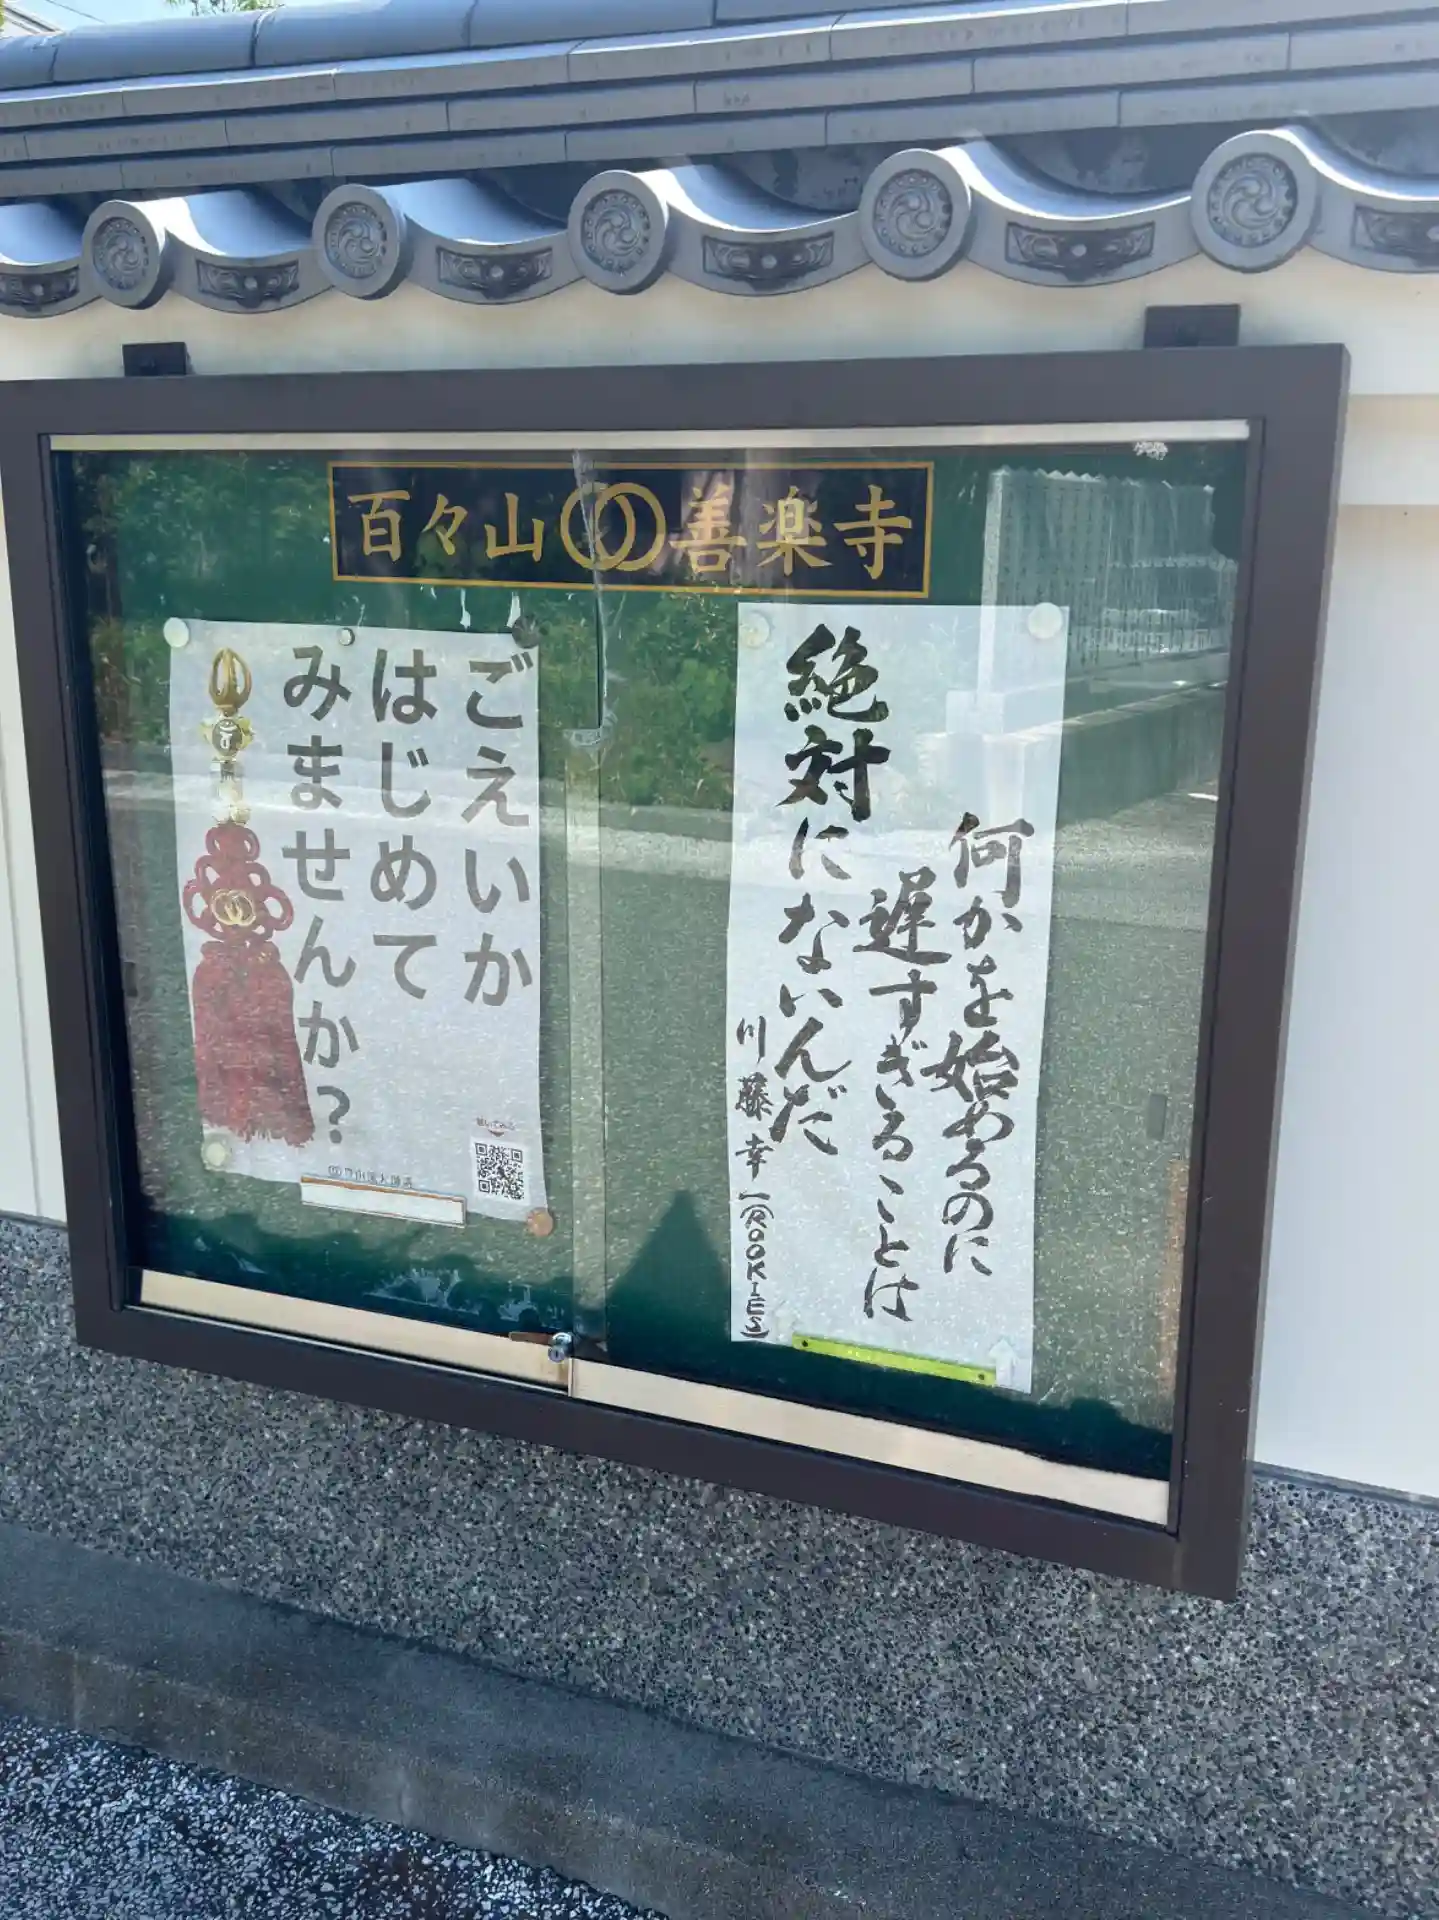 百々山 善楽寺
何かを始めるのに
遅すぎることは
絶対にないんだ
川藤幸一(ROOKIES)
ごえいか
はじめて
みませんか?
聴いてみる